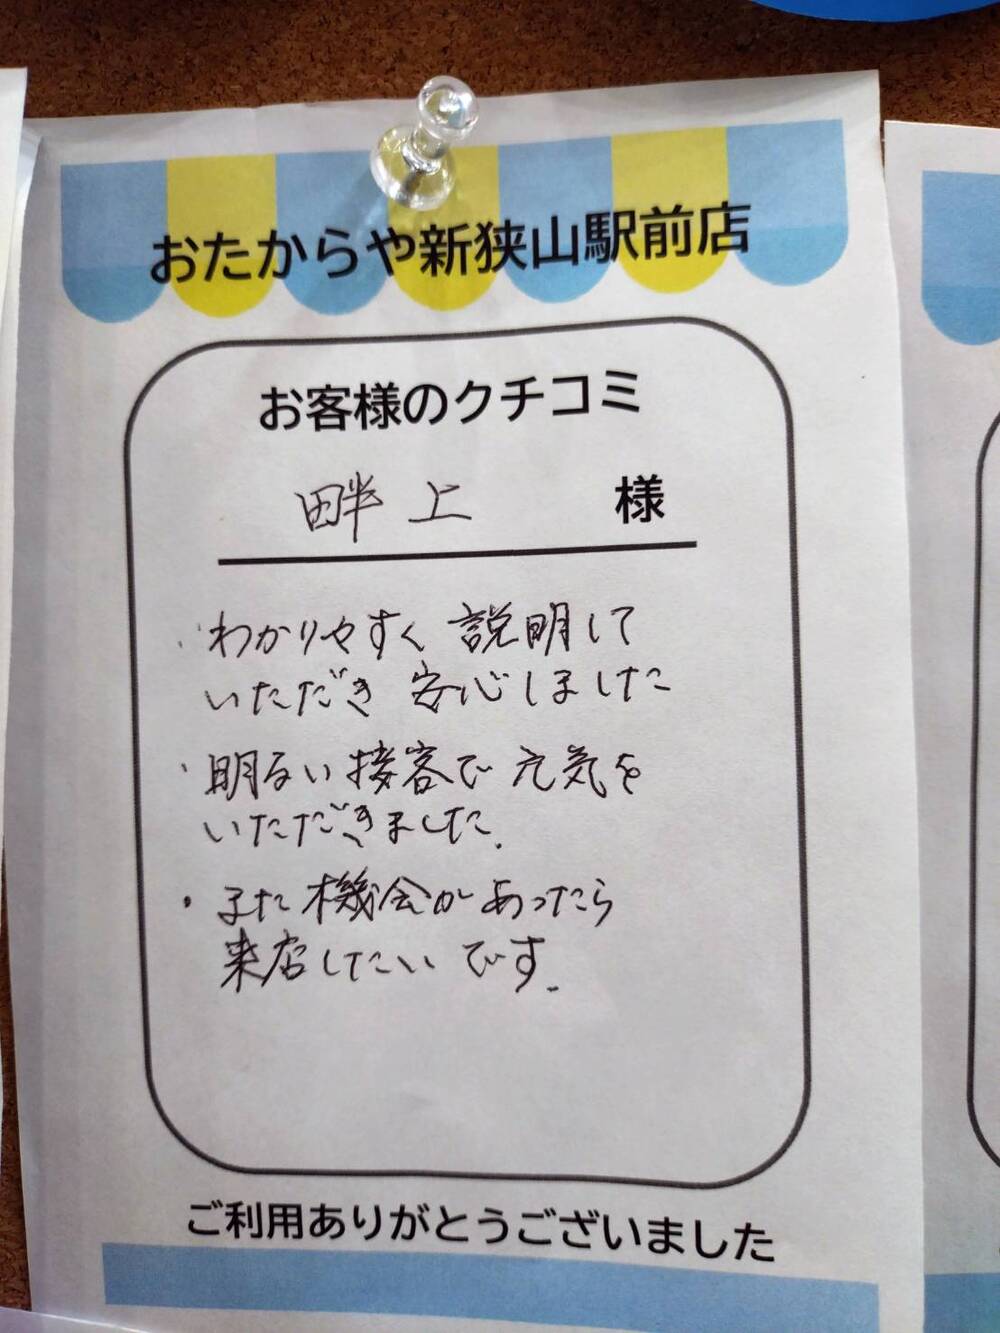 おたからや新狭山駅前店
お客様のクチコミ
畔上 様
・わかりやすく説明して
いただき安心しました
・明るい接客で元気を
いただきました.
・また機会があったら
来店したいです.
ご利用ありがとうございました